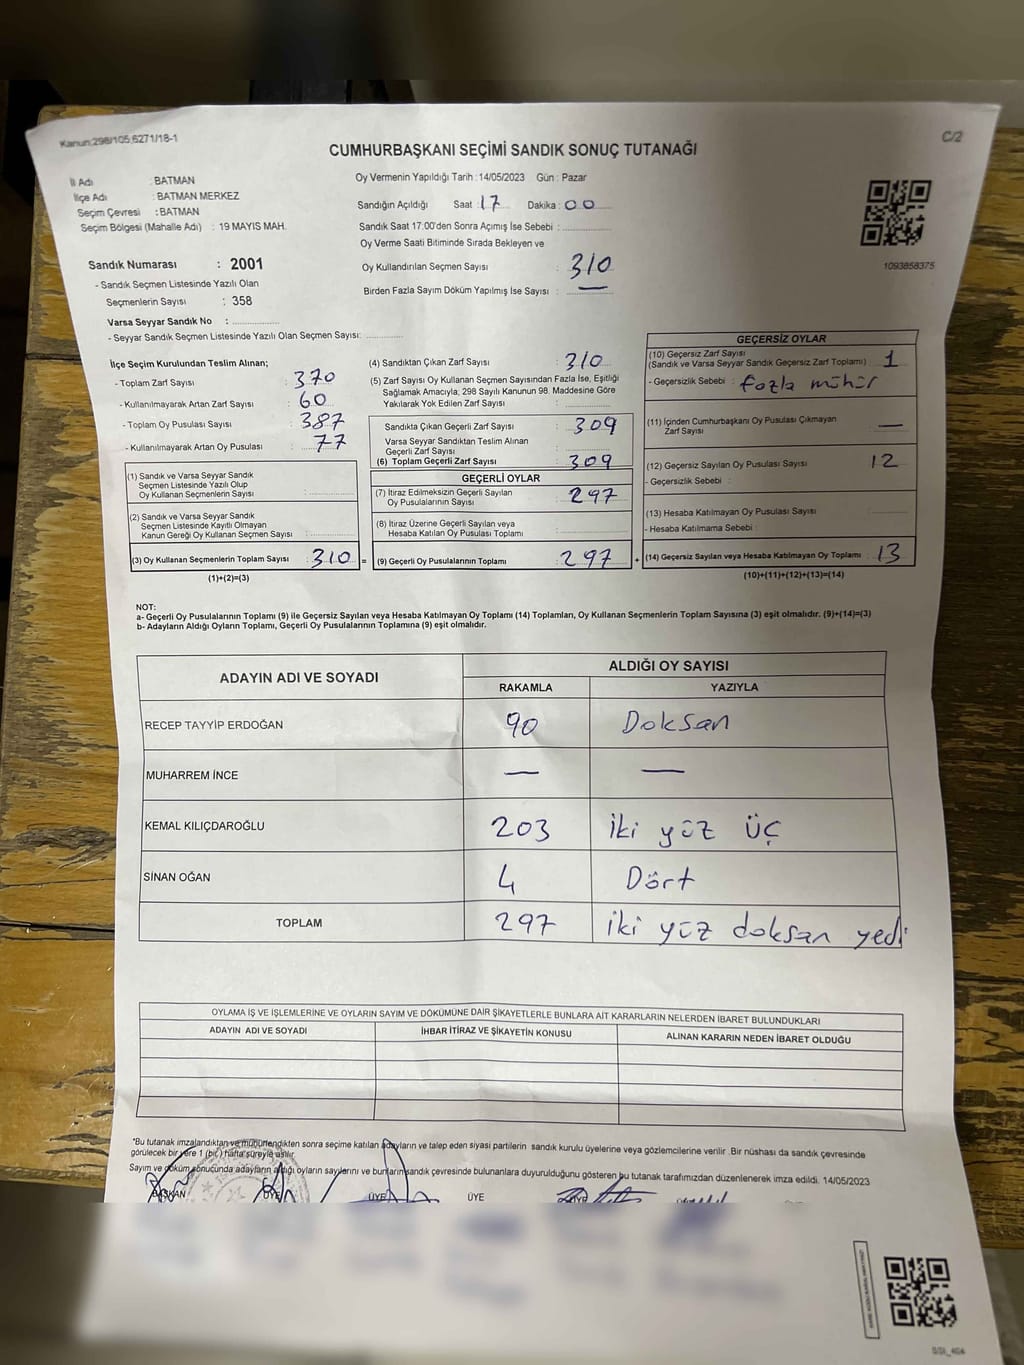 Kanun:298/105;6271/18-1
C/2
CUMHURBAŞKANI SEÇİMİ SANDIK SONUÇ TUTANAĞI
İl Adı : BATMAN
İlçe Adı : BATMAN MERKEZ
Seçim Çevresi : BATMAN
Seçim Bölgesi (Mahalle Adı) : 19 MAYIS MAH.
Oy Vermenin Yapıldığı Tarih : 14/05/2023 Gün : Pazar
Sandığın Açıldığı Saat : 17 Dakika : 00
Sandık Saat 17:00'den Sonra Açımış İse Sebebi :
Oy Verme Saati Bitiminde Sırada Bekleyen ve
Oy Kullandırılan Seçmen Sayısı : 310
Birden Fazla Sayım Döküm Yapılmış İse Sayısı : —
1093858375
Sandık Numarası : 2001
- Sandık Seçmen Listesinde Yazılı Olan
Seçmenlerin Sayısı : 358
Varsa Seyyar Sandık No :
- Seyyar Sandık Seçmen Listesinde Yazılı Olan Seçmen Sayısı:
İlçe Seçim Kurulundan Teslim Alınan;
- Toplam Zarf Sayısı : 370
- Kullanılmayarak Artan Zarf Sayısı : 60
- Toplam Oy Pusulası Sayısı : 387
- Kullanılmayarak Artan Oy Pusulası : 77
(1) Sandık ve Varsa Seyyar Sandık
Seçmen Listesinde Yazılı Olup
Oy Kullanan Seçmenlerin Sayısı :
(2) Sandık ve Varsa Seyyar Sandık
Seçmen Listesinde Kayıtlı Olmayan
Kanun Gereği Oy Kullanan Seçmen Sayısı :
(3) Oy Kullanan Seçmenlerin Toplam Sayısı : 310 =
(1)+(2)=(3)
(4) Sandıktan Çıkan Zarf Sayısı : 310
(5) Zarf Sayısı Oy Kullanan Seçmen Sayısından Fazla İse, Eşitliği
Sağlamak Amacıyla; 298 Sayılı Kanunun 98. Maddesine Göre
Yakılarak Yok Edilen Zarf Sayısı :
Sandıkta Çıkan Geçerli Zarf Sayısı : 309
Varsa Seyyar Sandıktan Teslim Alınan
Geçerli Zarf Sayısı :
(6) Toplam Geçerli Zarf Sayısı : 309
GEÇERLİ OYLAR
(7) İtiraz Edilmeksizin Geçerli Sayılan
Oy Pusulalarının Sayısı : 297
(8) İtiraz Üzerine Geçerli Sayılan veya
Hesaba Katılan Oy Pusulası Toplamı :
(9) Geçerli Oy Pusulalarının Toplamı : 297 +
GEÇERSİZ OYLAR
(10) Geçersiz Zarf Sayısı
(Sandık ve Varsa Seyyar Sandık Geçersiz Zarf Toplamı) : 1
- Geçersizlik Sebebi : fazla mühür
(11) İçinden Cumhurbaşkanı Oy Pusulası Çıkmayan
Zarf Sayısı : —
(12) Geçersiz Sayılan Oy Pusulası Sayısı : 12
- Geçersizlik Sebebi :
(13) Hesaba Katılmayan Oy Pusulası Sayısı :
- Hesaba Katılmama Sebebi :
(14) Geçersiz Sayılan veya Hesaba Katılmayan Oy Toplamı : 13
(10)+(11)+(12)+(13)=(14)
NOT:
a- Geçerli Oy Pusulalarının Toplamı (9) ile Geçersiz Sayılan veya Hesaba Katılmayan Oy Toplamı (14) Toplamları, Oy Kullanan Seçmenlerin Toplam Sayısına (3) eşit olmalıdır. (9)+(14)=(3)
b- Adayların Aldığı Oyların Toplamı, Geçerli Oy Pusulalarının Toplamına (9) eşit olmalıdır.
ADAYIN ADI VE SOYADI
ALDIĞI OY SAYISI
RAKAMLA YAZIYLA
RECEP TAYYİP ERDOĞAN 90 Doksan
MUHARREM İNCE — —
KEMAL KILIÇDAROĞLU 203 iki yüz ÜÇ
SİNAN OĞAN 4 Dört
TOPLAM 297 iki yüz doksan yedi
OYLAMA İŞ VE İŞLEMLERİNE VE OYLARIN SAYIM VE DÖKÜMÜNE DAİR ŞİKAYETLERLE BUNLARA AİT KARARLARIN NELERDEN İBARET BULUNDUKLARI
ADAYIN ADI VE SOYADI İHBAR İTİRAZ VE ŞİKAYETİN KONUSU ALINAN KARARIN NEDEN İBARET OLDUĞU
*Bu tutanak imzalandıktan ve mühürlendikten sonra seçime katılan adayların ve talep eden siyasi partilerin sandık kurulu üyelerine veya gözlemcilerine verilir .Bir nüshası da sandık çevresinde
görülecek bir yere 1 (bir) hafta süreyle asılır.
Sayım ve döküm sonuçunda adayların aldığı oyların sayılarını ve bunların sandık çevresinde bulunanlara duyurulduğunu gösteren bu tutanak tarafımızdan düzenlenerek imza edildi. 14/05/2023
BAŞKAN ÜYE ÜYE ÜYE ÜYE